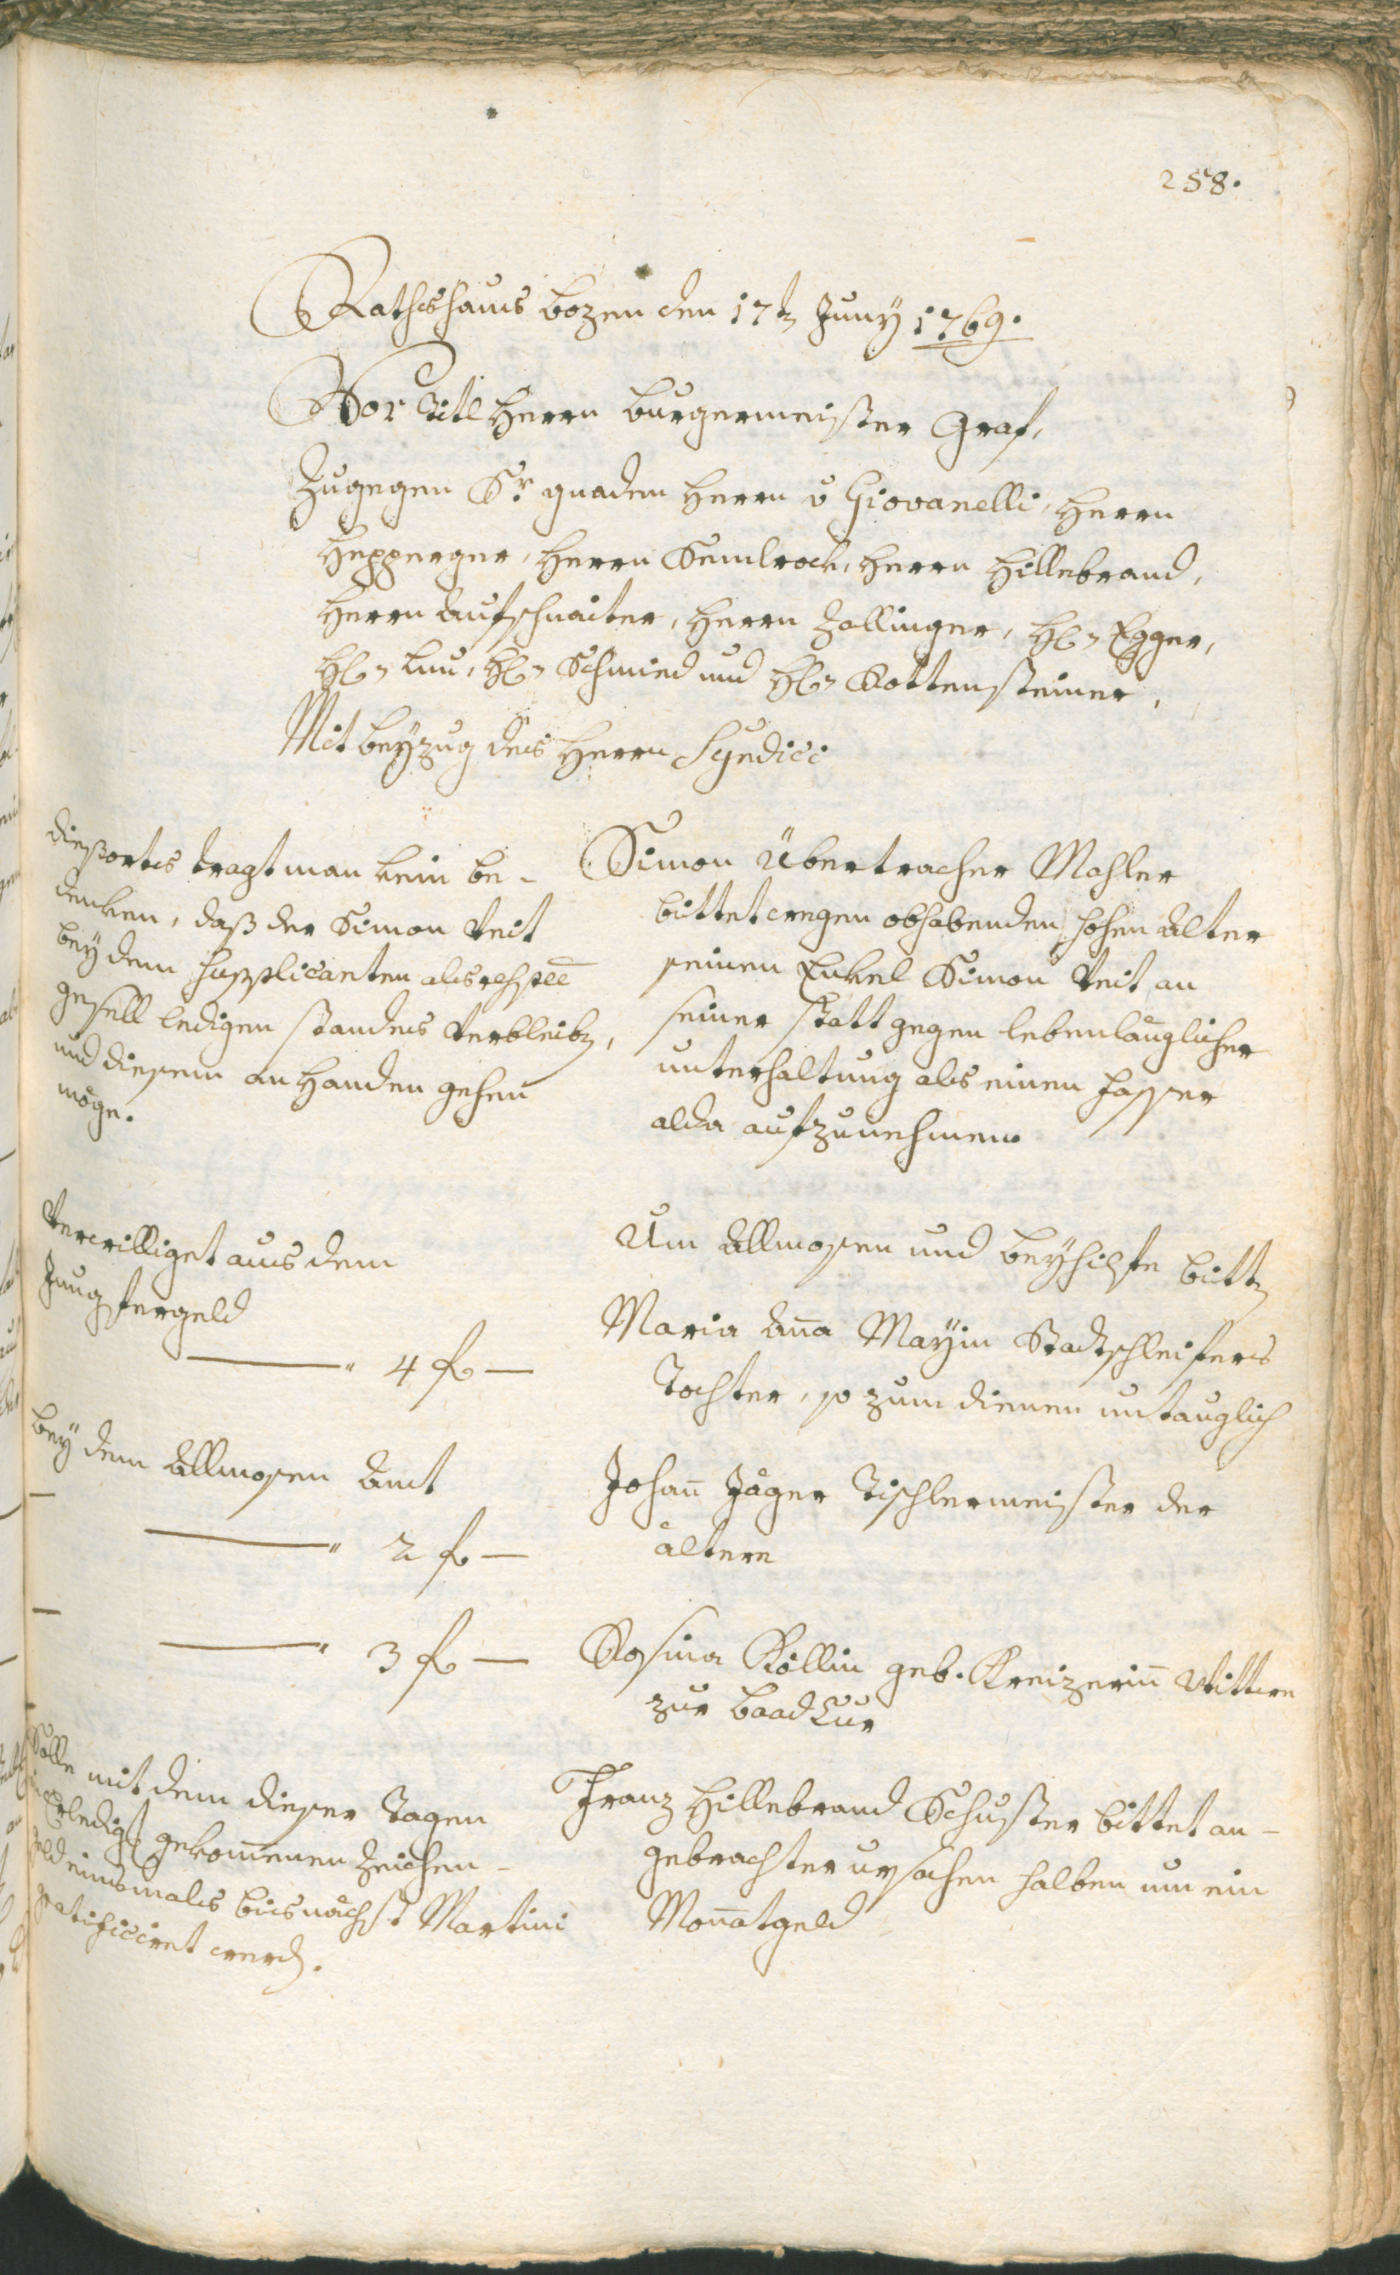 258.
Rathshaus Bozen den 17t Juny 1769.
Vor Titl Herrn Burgermeister Graf,
Zugegen Sr. gnaden Herrn v Giovanelli, Herrn
Hepperger, Herrn Semlrock, Herrn Hillebrand,
Herrn Aufschnaiter, Herrn Zallinger, H: Egger,
H: Luu, H: Schmied und H: Kottensteiner,
Mit beyzug des Herrn Syndici
dießorts tragt man kein be-
denken, daß der Simon Veit
bey dem supplicanten als
gesell ledigen standes verbleibe,
und diesem an Handen gehen
möge.
Simon Übertracher Mahler
bittet wegen obhabenden hohen Alter
seinen Enkel Simon Veit an
seiner statt gegen lebenlänglicher
unterhaltung als einen Hasser
alda aufzunehmen.
Verwilliget aus dem
Jungfergeld
" 4 f —
Um Allmosen und beyhilfe bittet
Maria Aña Mayin Stadtschleifers
Tochter, so zum dienen untauglich
bey dem Allmosen Amt
" 2 f —
Johañ Jäger Tischlermeister der
ältere
" 3 f —
Rosina Köllin geb. Kreizeriñ Wittwe
zur baad Cur
Solle mit dem dieser Tagen
Erledigt gekom̃enen Zeichen-
geld einsmals bis nächst Martini
gratificiret werden.
Franz Hillebrand Schuster bittet an-
gebrachter ursachen halben um ein
Mon̄atgeld